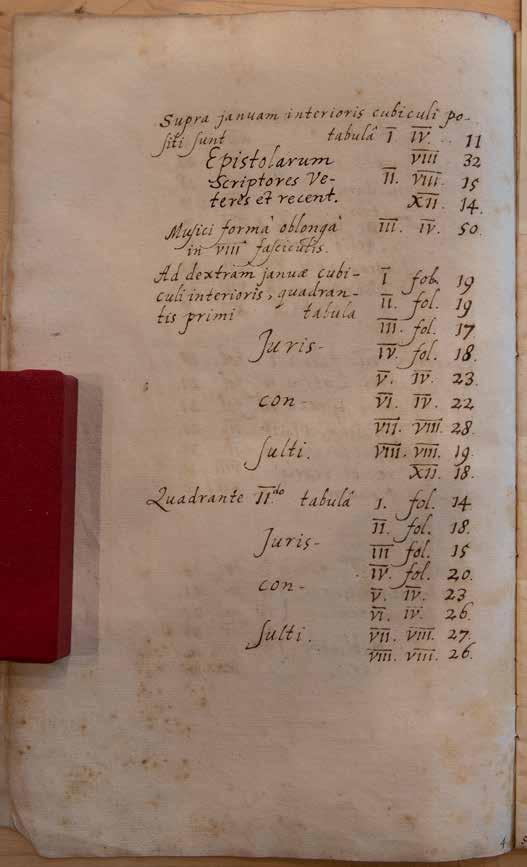 Supra januam interioris cubiculi po-
siti sunt tabulâ I IV. .. 11
Epistolarum VIII 32
Scriptores Ve- II. VIII. 15
teres et recent. XII. 14.
Musici formâ oblongâ III. IV. 50.
in VIII fasciculis.
Ad dextram januæ cubi- I fol. 19
culi interioris, quadran- II. fol. 19
tis primi tabula III. fol. 17
Juris- IV. fol. 18.
V. IV. 23.
con- VI. IV. 22
VII. VIII. 28.
sulti. VIII. VIII. 19.
XII. 18.
Quadrante II.do tabulâ I. fol. 14
II. fol. 18.
Juris- III fol. 15
IV. fol. 20.
con- V. IV. 23
VI. IV. 26.
sulti. VII. VIII. 27.
VIII. VIII. 26.
4